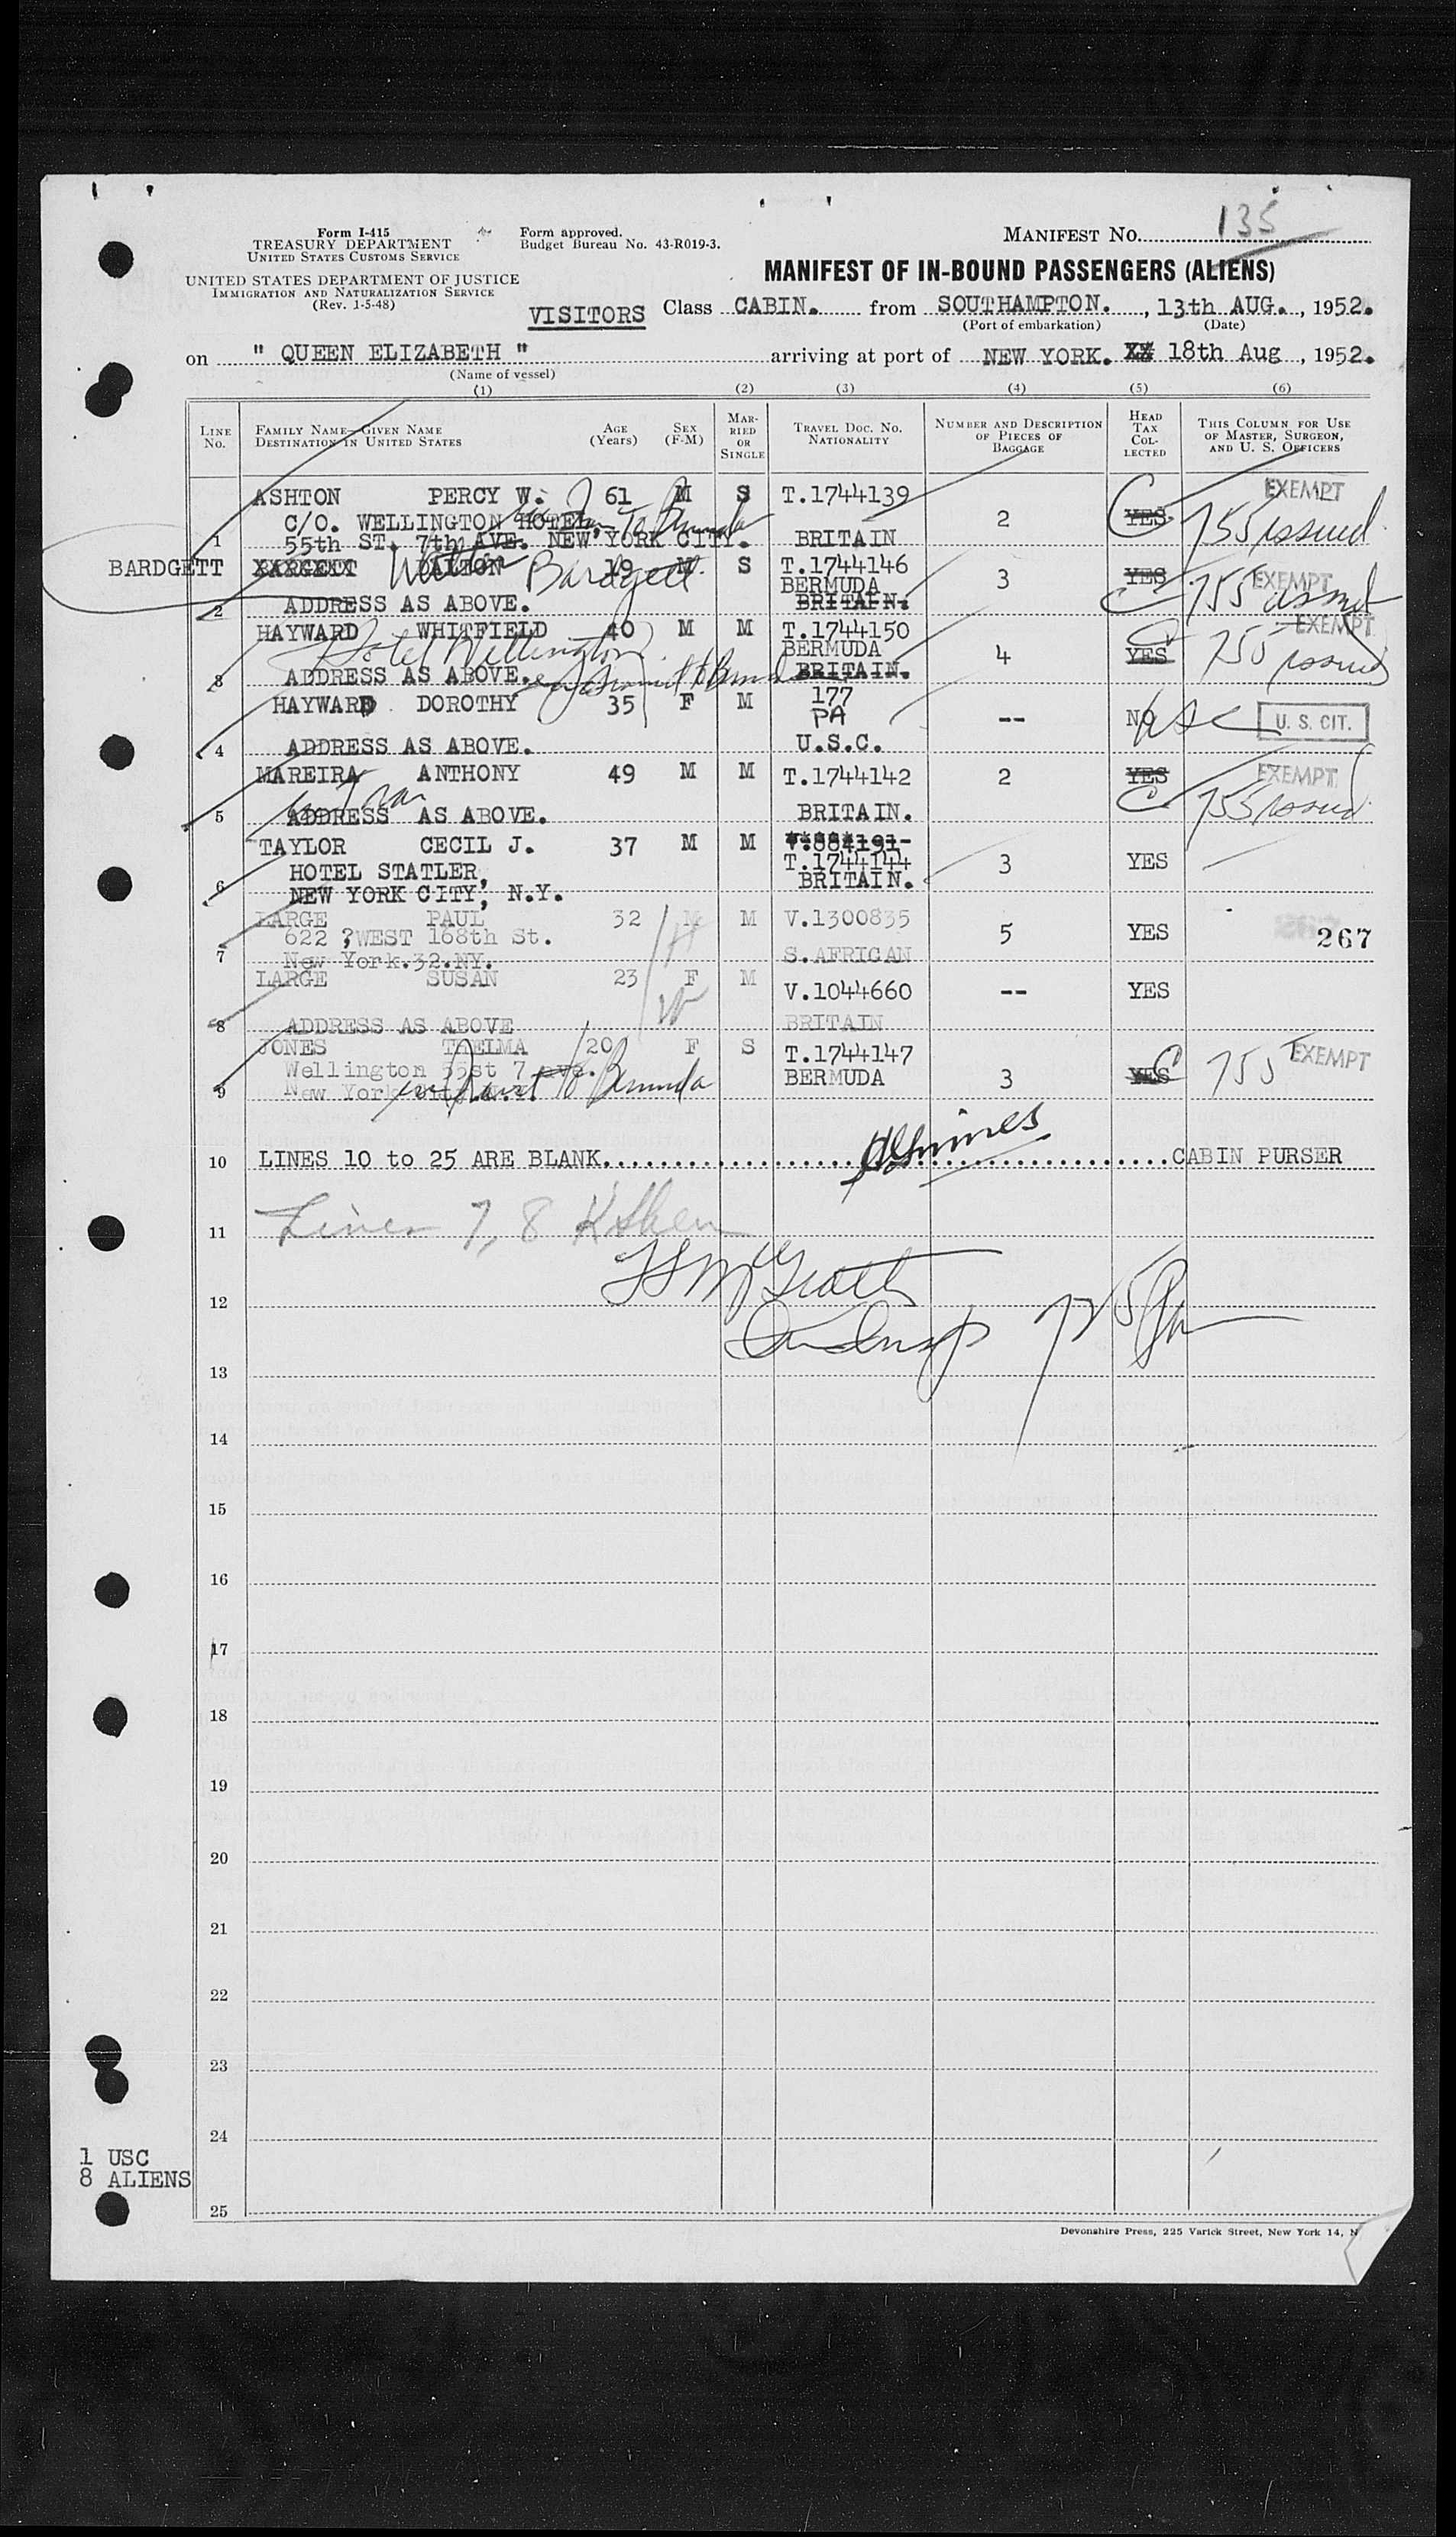 135
Form I-415
TREASURY DEPARTMENT
UNITED STATES CUSTOMS SERVICE
Form approved.
Budget Bureau No. 43-R019-3.
MANIFEST NO.
UNITED STATES DEPARTMENT OF JUSTICE
IMMIGRATION AND NATURALIZATION SERVICE
(Rev. 1-5-48)
MANIFEST OF IN-BOUND PASSENGERS (ALIENS)
VISITORS Class CABIN. from SOUTHAMPTON. , 13th AUG. , 1952.
(Port of embarkation) (Date)
on " QUEEN ELIZABETH " arriving at port of NEW YORK. 18th Aug , 1952.
(Name of vessel)
(1) (2) (3) (4) (5) (6)
LINE No. FAMILY NAME—GIVEN NAME DESTINATION IN UNITED STATES AGE (Years) SEX (F-M) MARRIED OR SINGLE TRAVEL DOC. NO. NATIONALITY NUMBER AND DESCRIPTION OF PIECES OF BAGGAGE HEAD TAX COLLECTED THIS COLUMN FOR USE OF MASTER, SURGEON, AND U. S. OFFICERS
ASHTON PERCY W. 61 M S T.1744139 EXEMPT
C/O. WELLINGTON HOTEL, To Bermuda 2 YES 755 issued
1 55th ST. 7th AVE. NEW YORK CITY. BRITAIN
BARDGETT DALTON Walton Bardgett 19 M S T.1744146 3 YES EXEMPT
BERMUDA 755 issued
2 ADDRESS AS ABOVE. BRITAIN.
HAYWARD WHITFIELD 40 M M T.1744150 EXEMPT
Hotel Wellington BERMUDA 4 YES 755 issued
3 ADDRESS AS ABOVE. BRITAIN.
HAYWARD DOROTHY 35 F M 177
PA -- NO USC U. S. CIT.
4 ADDRESS AS ABOVE. U.S.C.
MAREIRA ANTHONY 49 M M T.1744142 2 YES EXEMPT
5 ADDRESS AS ABOVE. BRITAIN. 755 issued
TAYLOR CECIL J. 37 M M V.884191-
HOTEL STATLER, T.1744144 3 YES
6 NEW YORK CITY, N.Y. BRITAIN.
LARGE PAUL 32 M M V.1300835
622 ?WEST 168th St. 5 YES 267
7 New York.32.NY. S.AFRICAN
LARGE SUSAN 23 F M V.1044660 -- YES
8 ADDRESS AS ABOVE BRITAIN
JONES THELMA 20 F S T.1744147 EXEMPT
Wellington 55st 7 ave. BERMUDA 3 YES 755
9 New York to Bermuda
10 LINES 10 to 25 ARE BLANK. CABIN PURSER
11 Lines 7, 8
12
13
14
15
16
17
18
19
20
21
22
23
24
1 USC
8 ALIENS
25
Devonshire Press, 225 Varick Street, New York 14, N